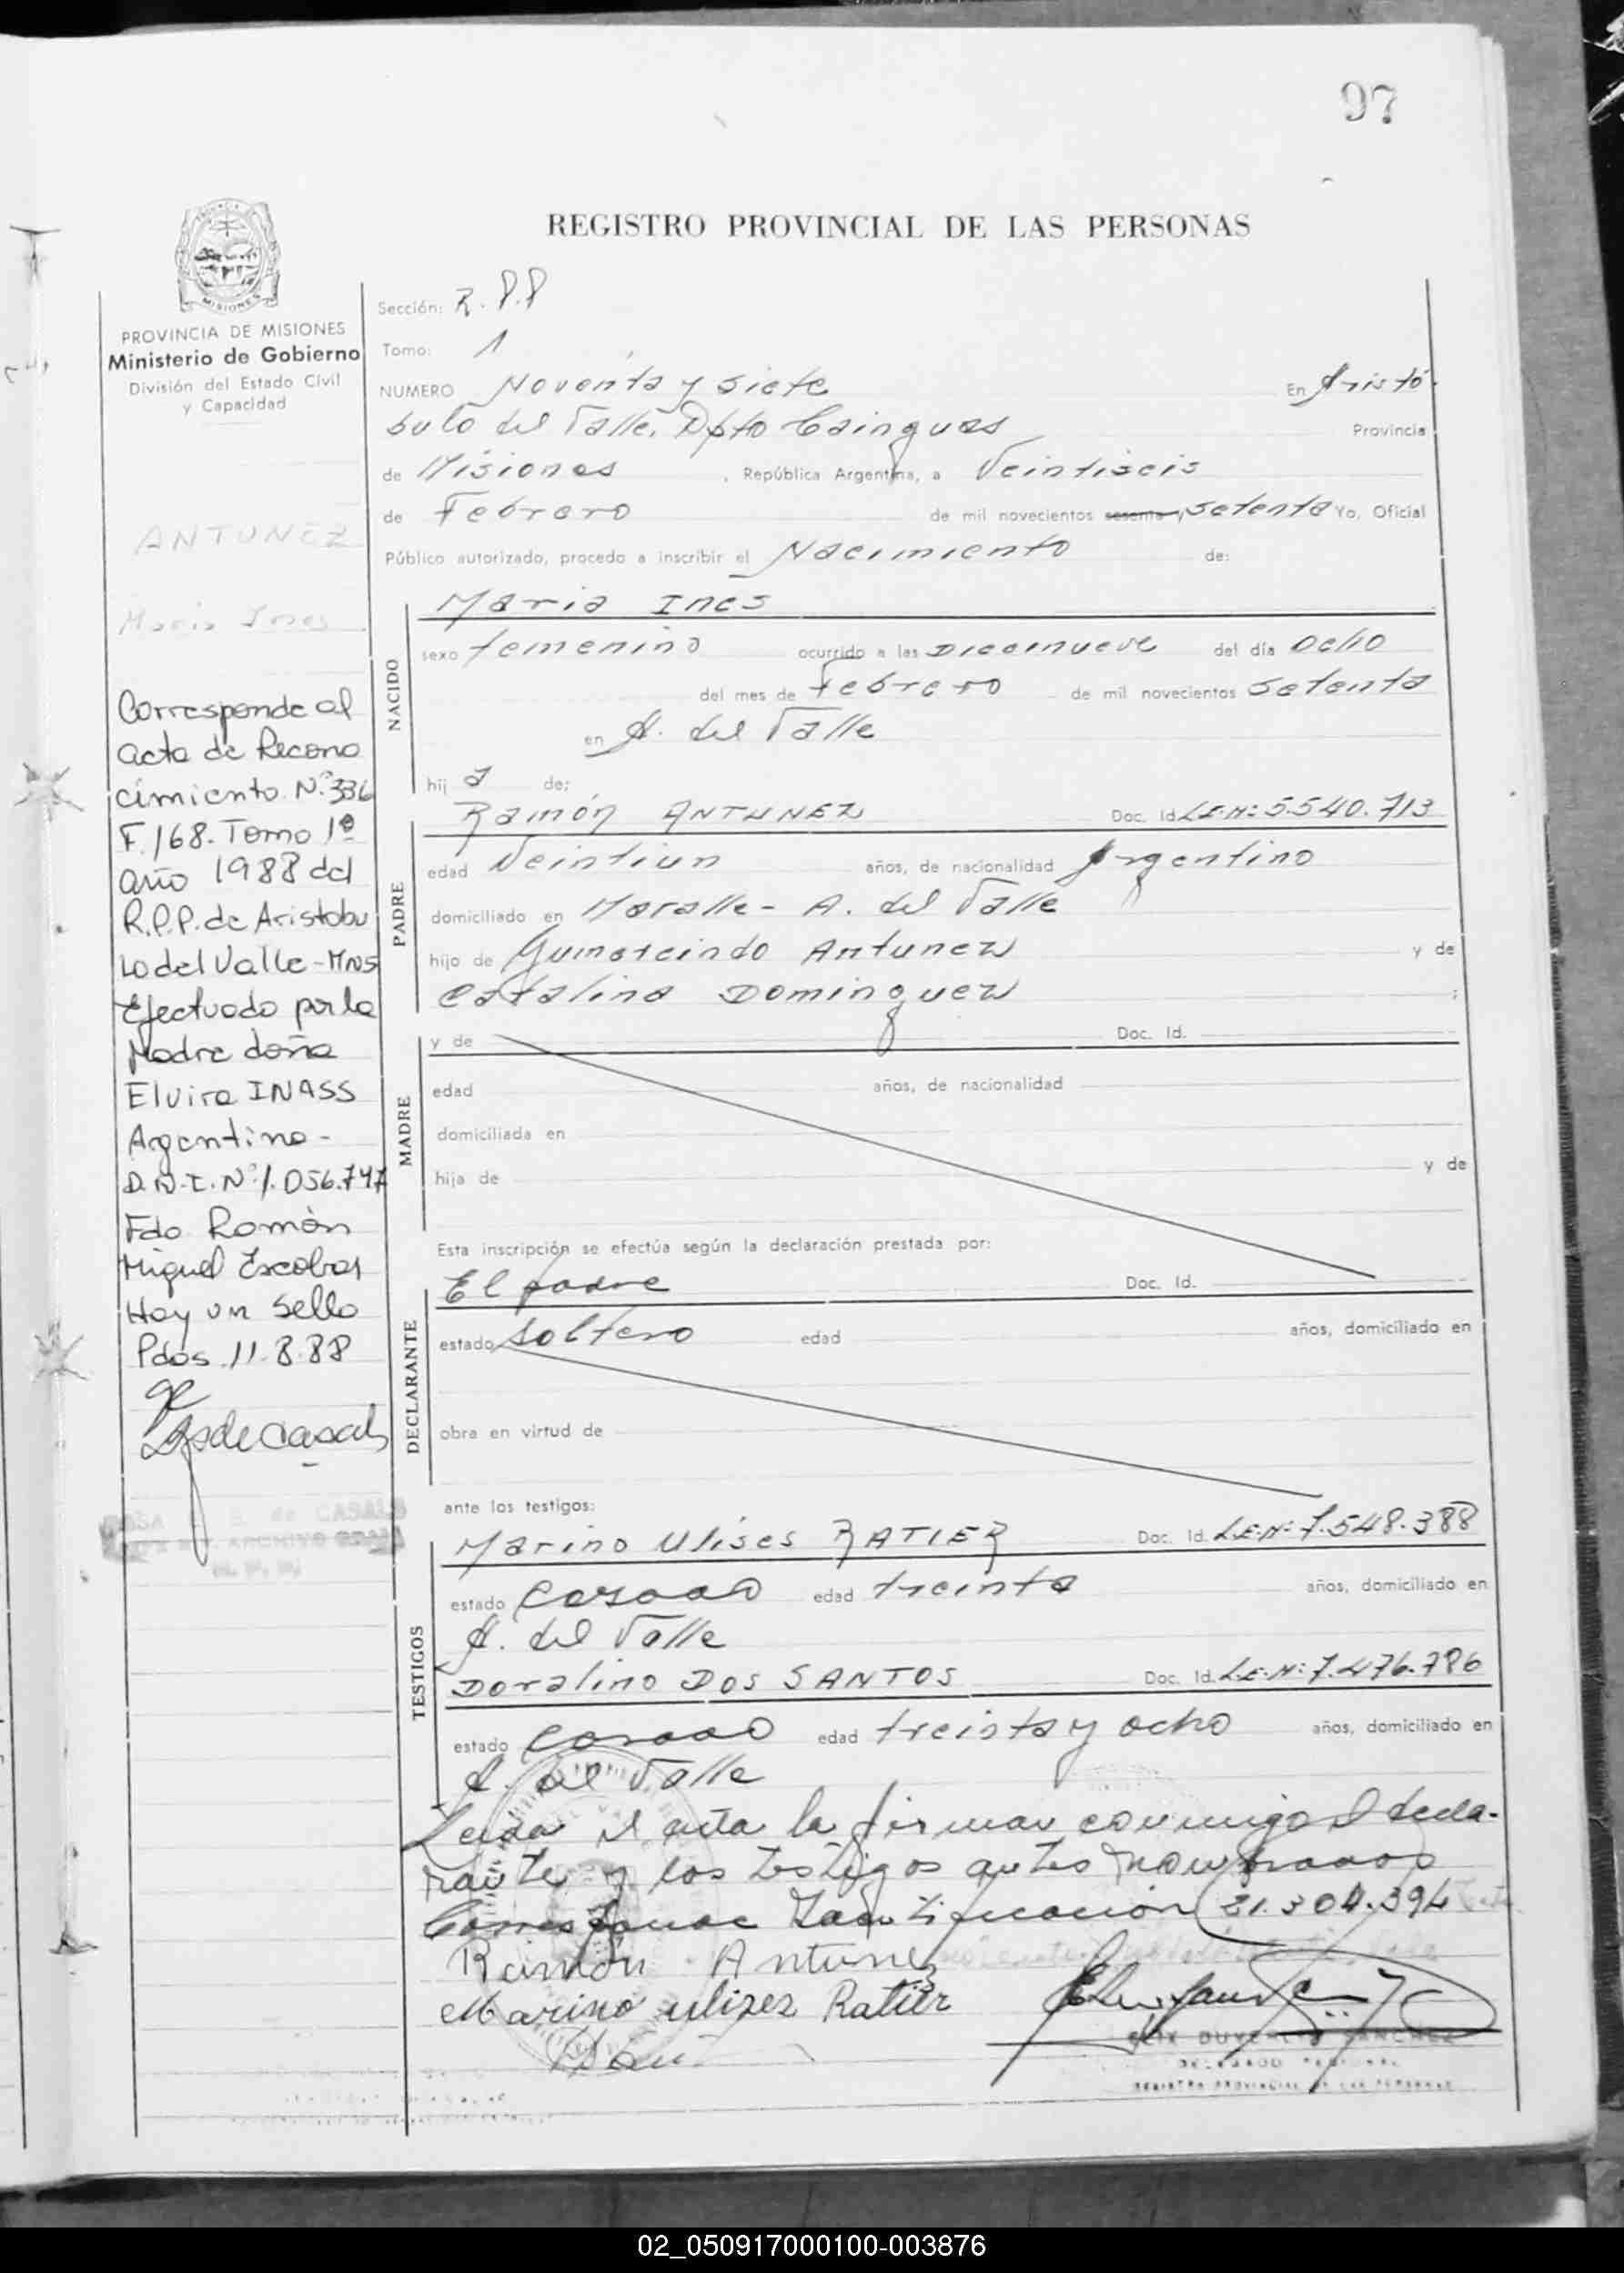 97
REGISTRO PROVINCIAL DE LAS PERSONAS
MISIONES
PROVINCIA DE MISIONES
Ministerio de Gobierno
División del Estado Civil
y Capacidad
ANTUNEZ
Maria Ines
Corresponde al
acta de Recono
cimiento N° 336
F. 168. Tomo 1º
año 1988 del
R.P.P. de Aristobu
lo del Valle - Mns
Efectuado por la
Madre doña
Elvira INASS
Argentina -
D.N.I. N°
Fdo Ramòn
Miguel Escobar
Hay un Sello
Pdas. 11.8.88
de CASALS
ARCHIVO
Sección: R.P.P
Tomo: 1
NUMERO Noventa y siete En Aristó
bulo del Valle, Dpto Cainguas Provincia
de Misiones , República Argentina, a Veintiseis
de Febrero de mil novecientos sesenta y setenta Yo, Oficial
Público autorizado, procedo a inscribir el Nacimiento de:
NACIDO
Maria Ines
sexo femenino ocurrido a las Diecinueve del día Ocho
del mes de Febrero de mil novecientos setenta
en A. del Valle
hij a de:
PADRE
Ramón ANTUNEZ Doc. Id. L.E.N: 5.540.713
edad Veintiun años, de nacionalidad Argentino
domiciliado en - A. del Valle
hijo de Gumercindo Antunez y de
Catalina Dominguez ;
MADRE
y de Doc. Id.
edad años, de nacionalidad
domiciliada en
hija de y de
Esta inscripción se efectúa según la declaración prestada por:
DECLARANTE
El padre Doc. Id.
estado soltero edad años, domiciliado en
obra en virtud de
ante los testigos:
TESTIGOS
Marino Ulises RATIER Doc. Id. L.E.N: 7.548.388
estado casado edad treinta años, domiciliado en
A. del Valle
Doralino DOS SANTOS Doc. Id. L.E.N: 7.476.786
estado casado edad treinta y ocho años, domiciliado en
A. del Valle
Leida el acta la firman conmigo el decla-
rante y los testigos antes nombrados
Corresponde Identificación 21.304.394
Ramón Antunez
Marino ulizez Ratier
SANCHEZ
DELEGADO
REGISTRO PROVINCIAL DE LAS PERSONAS
02_050917000100-003876